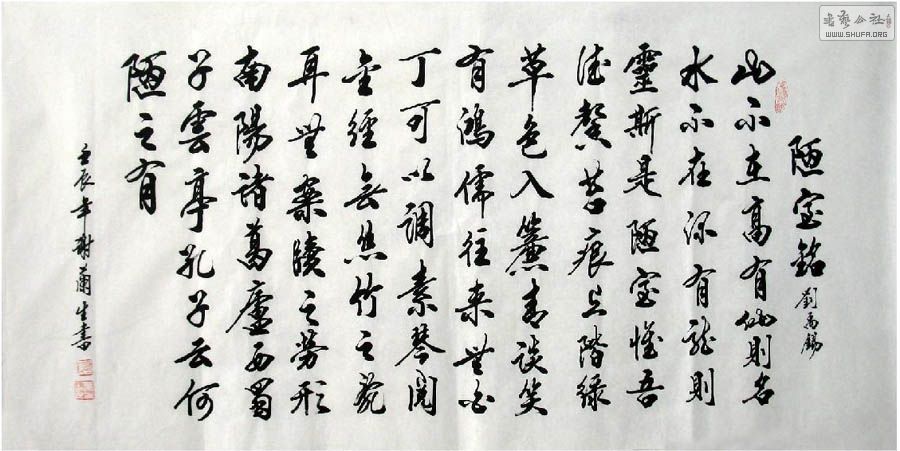 陋室銘 劉禹錫
山不在高有仙則名
水不在深有龍則
靈斯是陋室惟吾
德馨苔痕上階綠
草色入簾青談笑
有鴻儒往来無白
丁可以調素琴閱
金經無絲竹之亂
耳無案牘之勞形
南陽諸葛廬西蜀
子雲亭孔子云何
陋之有
壬辰年謝蘭生書
書藝公社
WWW.SHUFA.ORG